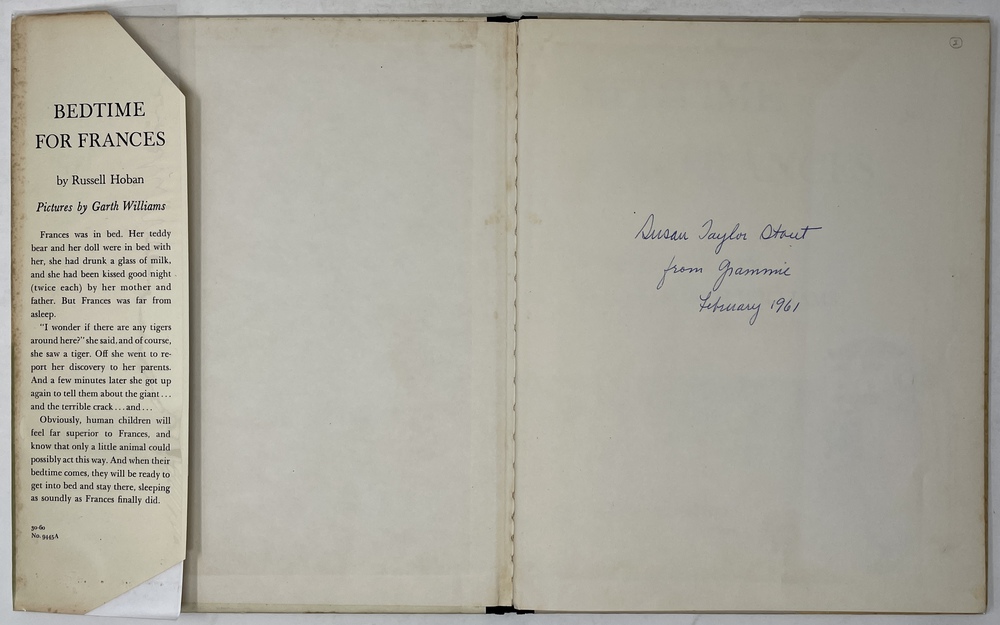 BEDTIME
FOR FRANCES
by Russell Hoban
Pictures by Garth Williams
Frances was in bed. Her teddy
bear and her doll were in bed with
her, she had drunk a glass of milk,
and she had been kissed good night
(twice each) by her mother and
father. But Frances was far from
asleep.
"I wonder if there are any tigers
around here?" she said, and of course,
she saw a tiger. Off she went to re-
port her discovery to her parents.
And a few minutes later she got up
again to tell them about the giant...
and the terrible crack...and...
Obviously, human children will
feel far superior to Frances, and
know that only a little animal could
possibly act this way. And when their
bedtime comes, they will be ready to
get into bed and stay there, sleeping
as soundly as Frances finally did.
30-60
No. 9445A
Susan Taylor Stout
from Grammie
February 1961